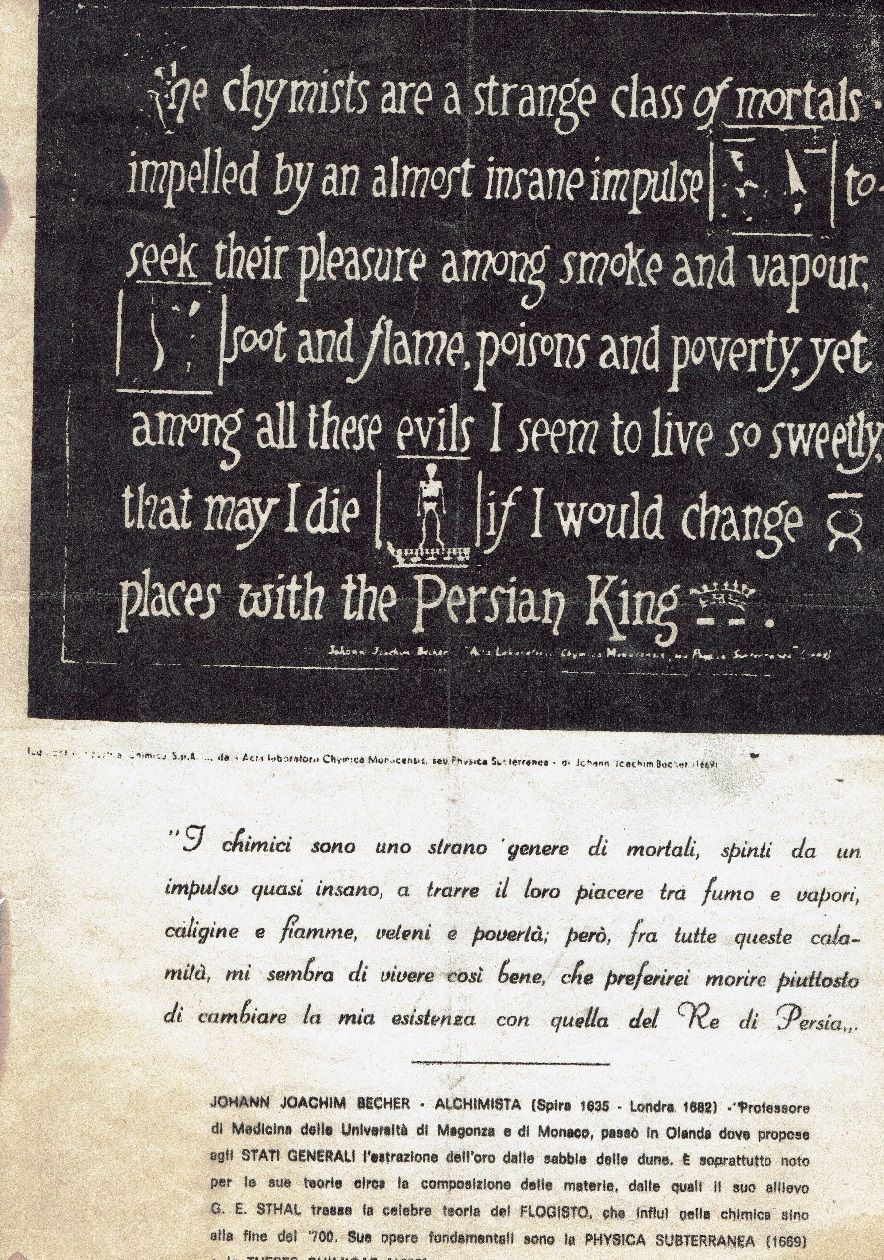 The chymists are a strange class of mortals.
impelled by an almost insane impulse to
seek their pleasure among smoke and vapour,
soot and flame, poisons and poverty, yet
among all these evils I seem to live so sweetly,
that may I die if I would change
places with the Persian King.
Johann Joachim Becher "Acta Laboratorii Chymica Monacensis, seu Physica Subterranea" (1669)
Chimica S.p.A. da « Acta laboratorii Chymica Monacensis, seu Physica Subterranea » di Johann Joachim Becher (1669)
"I chimici sono uno strano genere di mortali, spinti da un
impulso quasi insano, a trarre il loro piacere tra fumo e vapori,
caligine e fiamme, veleni e povertà; però, fra tutte queste cala-
mità, mi sembra di vivere così bene, che preferirei morire piuttosto
di cambiare la mia esistenza con quella del Re di Persia...
JOHANN JOACHIM BECHER - ALCHIMISTA (Spira 1635 - Londra 1682) - Professore
di Medicina delle Università di Magonza e di Monaco, passò in Olanda dove propose
agli STATI GENERALI l'estrazione dell'oro dalle sabbie delle dune. È soprattutto noto
per le sue teorie circa la composizione delle materie, dalle quali il suo allievo
G. E. STHAL trasse la celebre teoria del FLOGISTO, che influì nella chimica sino
alla fine del '700. Sue opere fondamentali sono la PHYSICA SUBTERRANEA (1669)